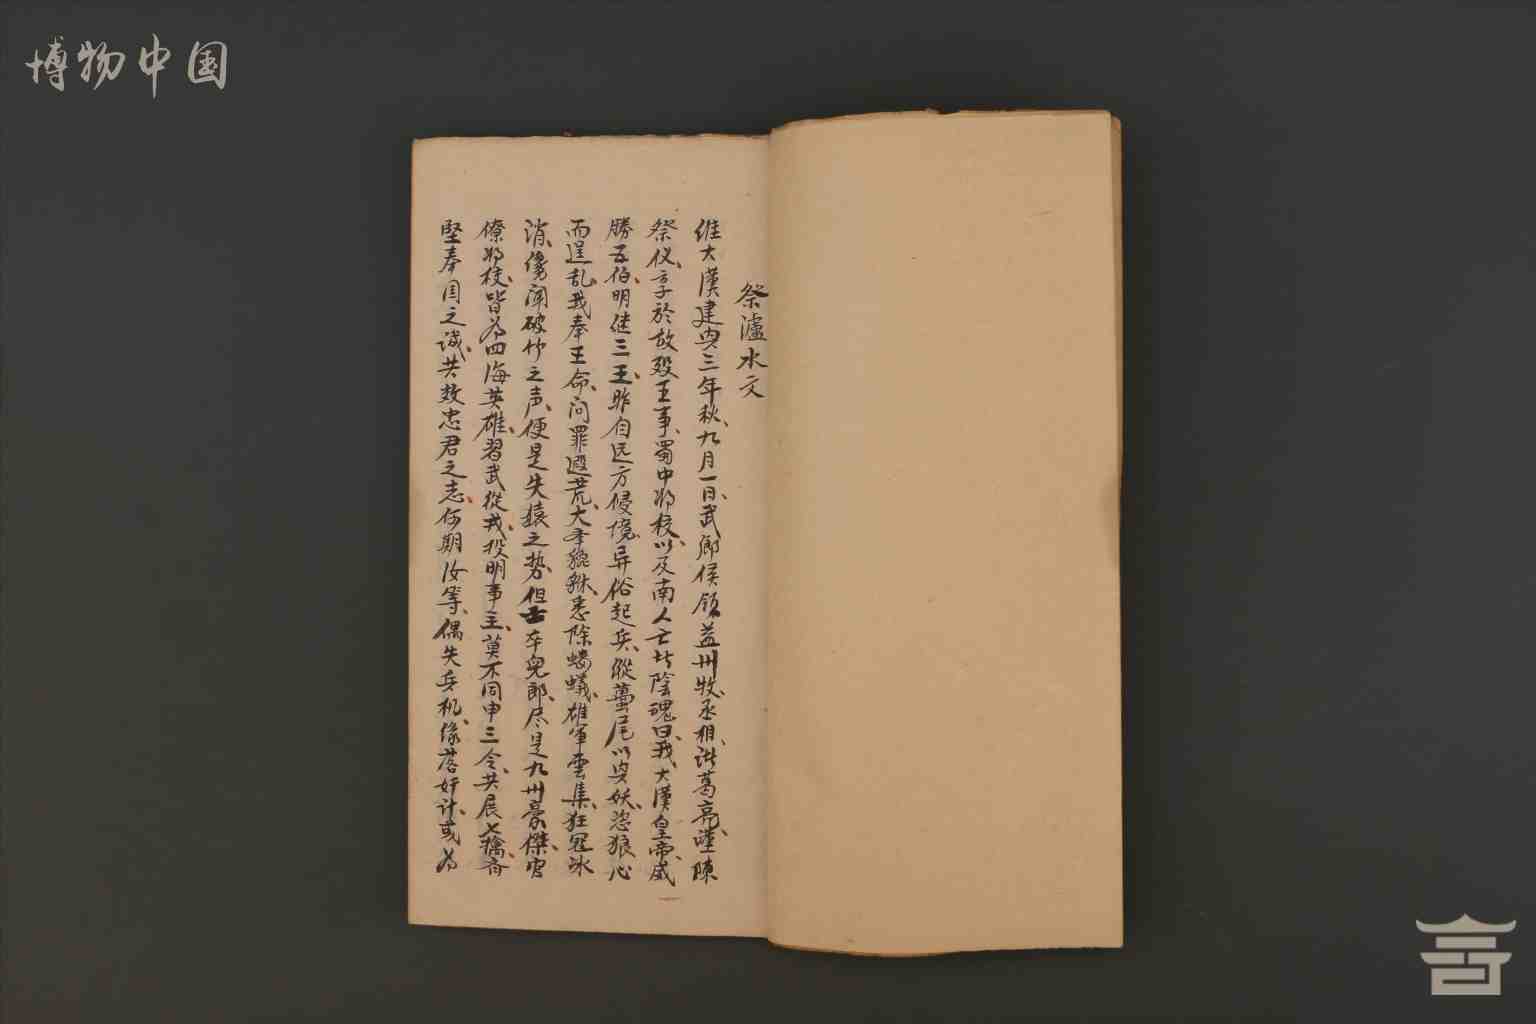 博物中国
祭瀘水文
維大漢建興三年秋九月一日武鄉侯領益州牧丞相諸葛亮謹陳
祭仪享於故殁王事蜀中將校以及南人亡者陰魂曰我大漢皇帝威
勝五伯明继三王昨自远方侵境异俗起兵縱蠆尾以興妖恣狼心
而逞乱我奉王命问罪遐荒大举貔貅悉除螻蟻雄軍雲集狂冦冰
消纔闻破竹之声便是失猿之势但士卒兒郎尽是九州豪傑官
僚將校皆为四海英雄習武從戎投明事主莫不同申三令共展七擒齐
堅奉国之诚共效忠君之志何期汝等偶失兵机缘落奸计或为